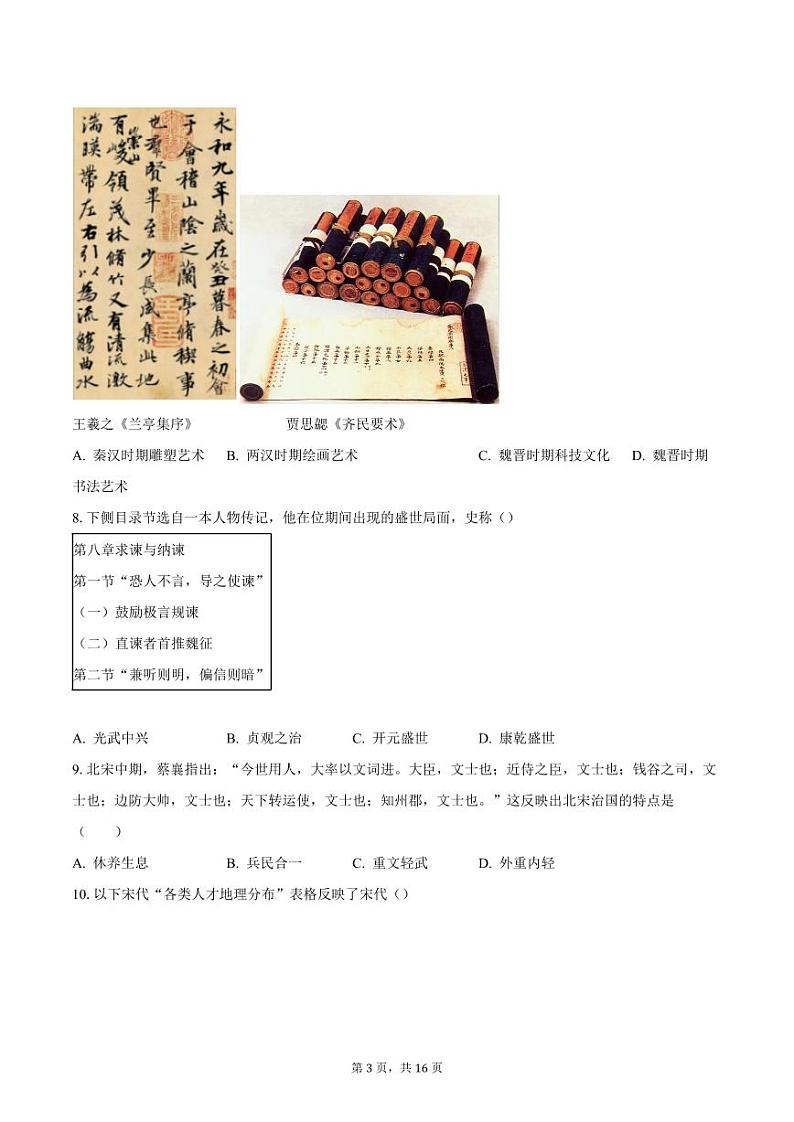 永和九年歲在癸丑暮春之初會
于會稽山陰之蘭亭脩稧事
也羣賢畢至少長咸集此地
有崇山峻領茂林脩竹又有清流激
湍暎帶左右引以為流觴曲水
王羲之《兰亭集序》 贾思勰《齐民要术》
A. 秦汉时期雕塑艺术 B. 两汉时期绘画艺术 C. 魏晋时期科技文化 D. 魏晋时期
书法艺术
8. 下侧目录节选自一本人物传记，他在位期间出现的盛世局面，史称（）
第八章求谏与纳谏
第一节“恐人不言，导之使谏”
（一）鼓励极言规谏
（二）直谏者首推魏征
第二节“兼听则明，偏信则暗”
A. 光武中兴 B. 贞观之治 C. 开元盛世 D. 康乾盛世
9. 北宋中期，蔡襄指出：“今世用人，大率以文词进。大臣，文士也；近侍之臣，文士也；钱谷之司，文
士也；边防大帅，文士也；天下转运使，文士也；知州郡，文士也。”这反映出北宋治国的特点是
（  ）
A. 休养生息 B. 兵民合一 C. 重文轻武 D. 外重内轻
10. 以下宋代“各类人才地理分布”表格反映了宋代（）
第 3 页，共 16 页